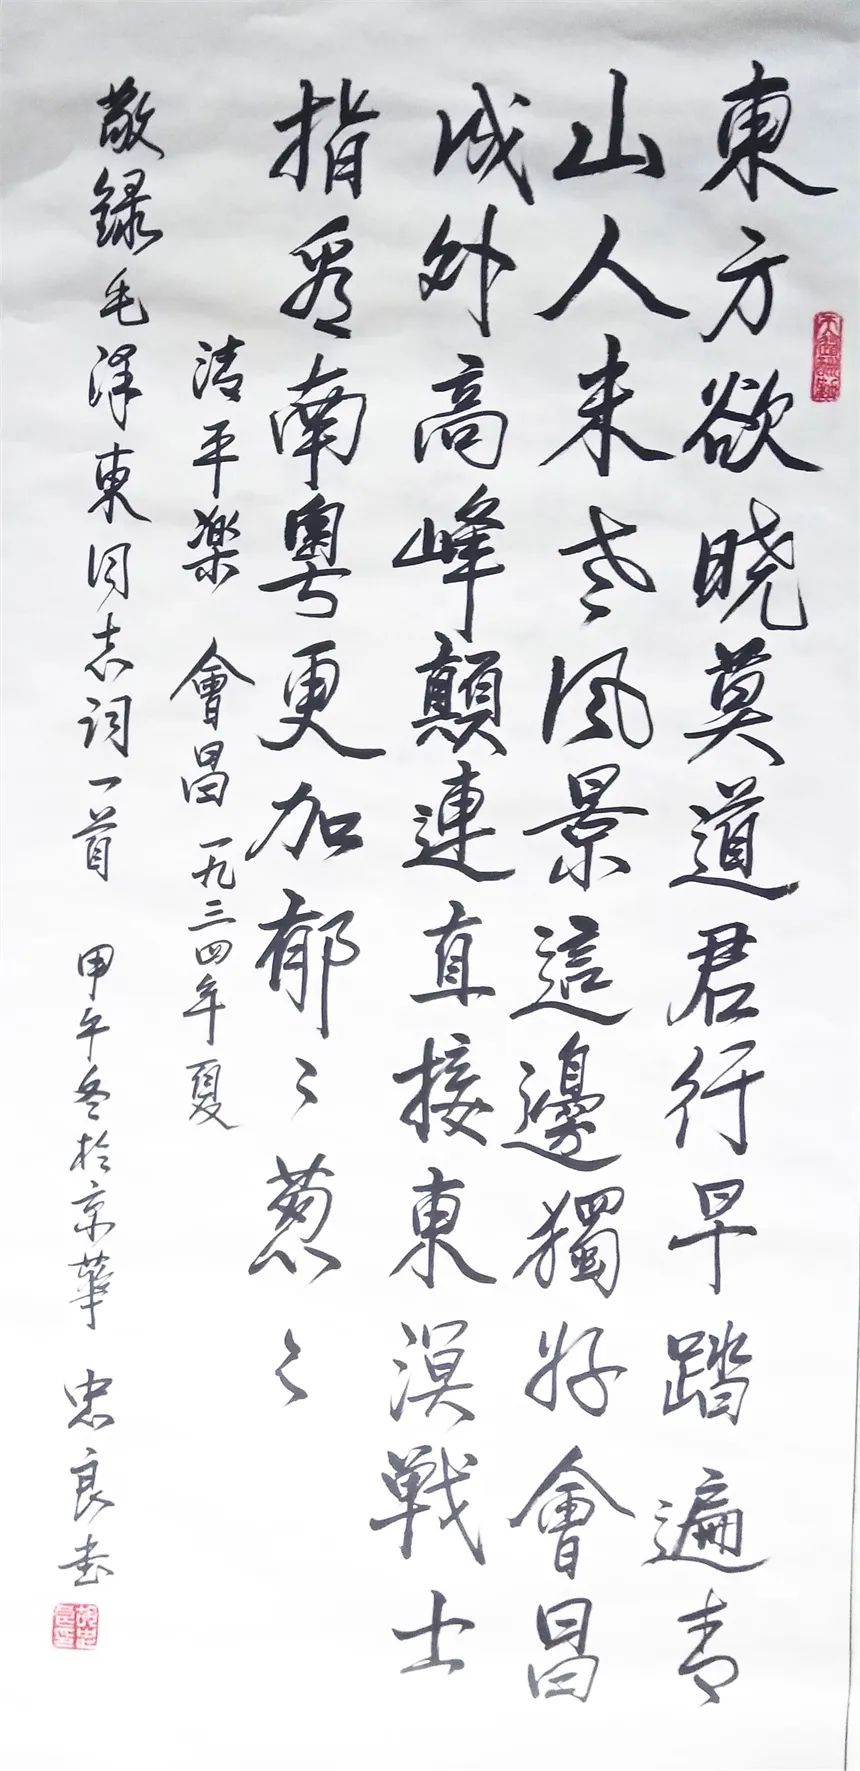 東方欲晓莫道君行早踏遍青
山人未老风景這邊獨好會昌
城外高峰顛連直接東溟戦士
指看南粵更加郁〻葱〻
清平楽 會昌 一九三四年夏
敬録毛泽東同志词一首 甲午冬於京華 忠良书
天道酬勤